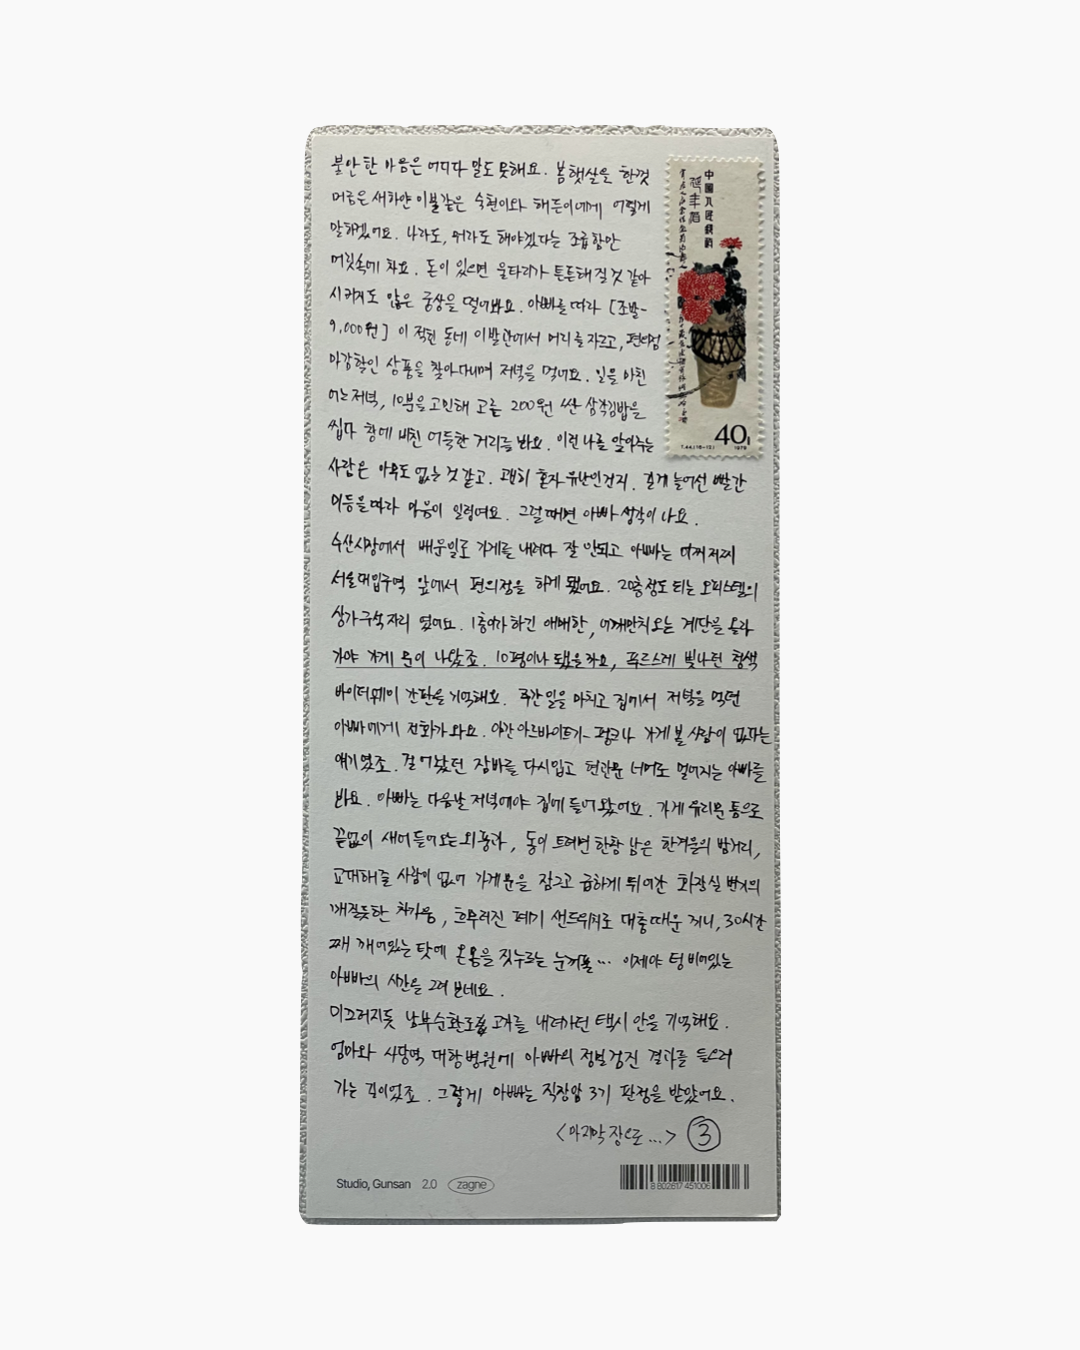 불안한 마음은 어디다 말도 못해요. 봄햇살을 한껏
머금은 새하얀 이불같은 숙현이와 해든이에게 어떻게
말하겠어요. 나라도, 뭐라도 해야겠다는 조급함만
머릿속에 차요. 돈이 있으면 울타리가 튼튼해질 것 같아
시키지도 않은 궁상을 떨어봐요. 아빠를 따라 [조발-
9,000원] 이 적힌 동네 이발관에서 머리를 자르고, 편의점
마감할인 상품을 찾아다니며 저녁을 먹어요. 일을 마친
어느 저녁, 10분을 고민해 고른 200원 싼 삼각김밥을
씹다 창에 비친 어둑한 거리를 봐요. 이런 나를 알아주는
사람은 아무도 없는 것 같고. 괜히 혼자 유난인건지. 길게 늘어선 빨간
미등을 따라 마음이 일렁여요. 그럴때면 아빠 생각이 나요.
수산시장에서 배운일로 가게를 내려다 잘 안되고 아빠는 어찌저찌
서울대입구역 앞에서 편의점을 하게 됐어요. 20층 정도 되는 오피스텔의
상가 구석자리 였어요. 1층이라 하긴 애매한, 어깨만치 오는 계단을 올라
가야 가게 문이 나왔죠. 10평이나 됐을까요, 푸르스레 빛나던 청색
바이더웨이 간판을 기억해요. 주간일을 마치고 집에서 저녁을 먹던
아빠에게 전화가 와요. 야간 아르바이트가 펑크나 가게 볼 사람이 없다는
얘기였죠. 걸어놨던 잠바를 다시입고 현관문 너머로 멀어지는 아빠를
봐요. 아빠는 다음날 저녁에야 집에 들어왔어요. 가게 유리문 통으로
끝없이 새어 들어오는 외풍과, 동이 트려면 한창 남은 한겨울의 밤거리,
교대해줄 사람이 없어 가게문을 잠그고 급하게 뛰어간 화장실 변기의
깨질듯한 차가움, 흐무러진 폐기 샌드위치로 대충 때운 끼니, 30시간
째 깨어있는 탓에 온몸을 짓누르는 눈꺼풀... 이제야 텅 비어있는
아빠의 시간을 그려 보네요.
미끄러지듯 남부순환로 고개를 내려가던 택시 안을 기억해요.
엄마와 사당역 대항병원에 아빠의 정밀검진 결과를 들으러
가는 길이었죠. 그렇게 아빠는 직장암 3기 판정을 받았어요.
<마지막 장으로...> ③
中國人民郵政
40分
T.44.(16-12)
1979
Studio, Gunsan 2.0 zagne
8 802617 451006